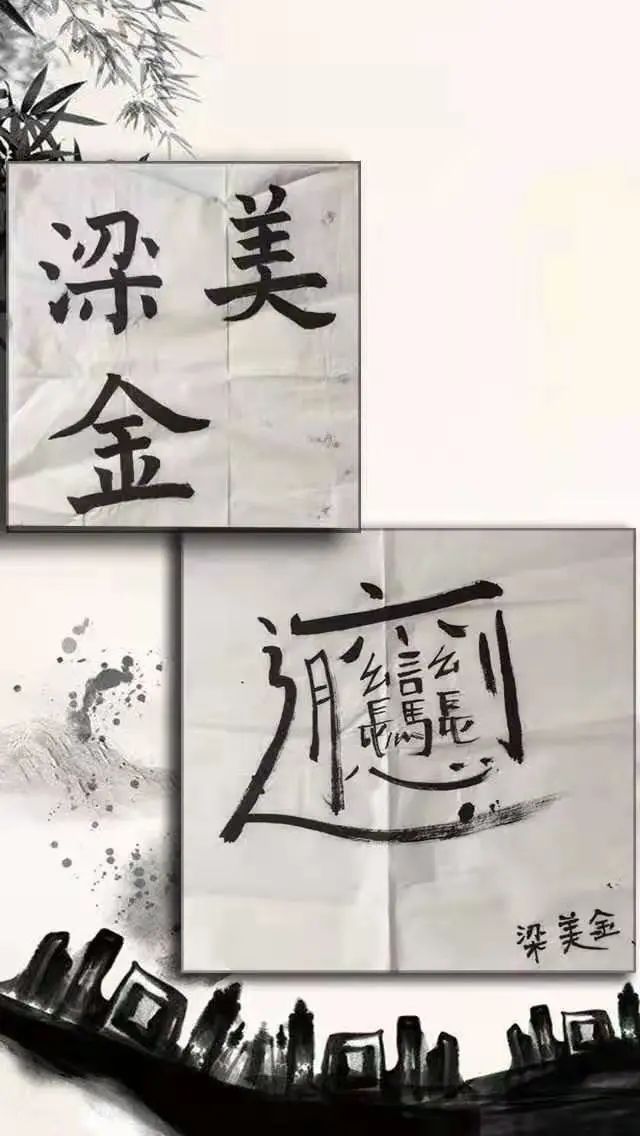 梁美
金
𰻞
梁美金